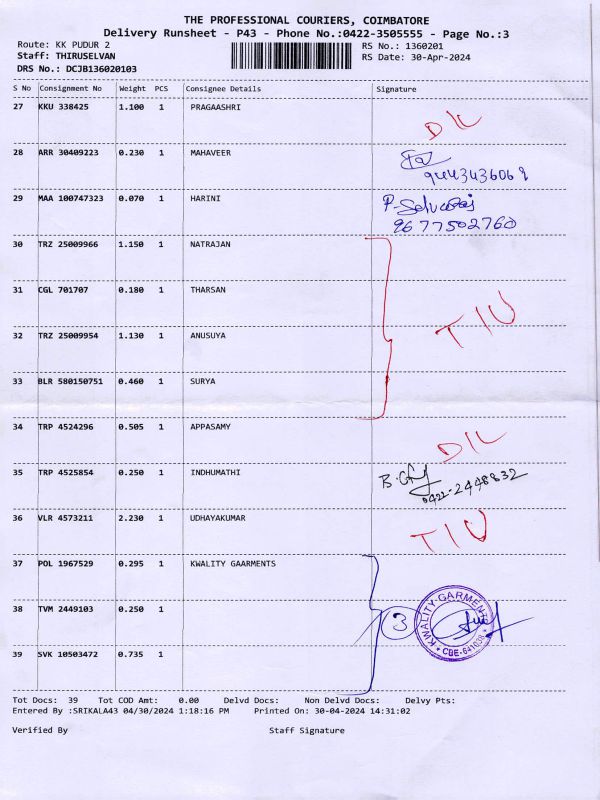 THE PROFESSIONAL COURIERS, COIMBATORE
Delivery Runsheet - P43 - Phone No.:0422-3505555 - Page No.:3
Route: KK PUDUR 2 RS No.: 1360201
Staff: THIRUSELVAN RS Date: 30-Apr-2024
DRS No.: DCJB136020103
S No Consignment No Weight PCS Consignee Details Signature
27 KKU 338425 1.100 1 PRAGAASHRI
28 ARR 30409223 0.230 1 MAHAVEER
9443436069
29 MAA 100747323 0.070 1 HARINI P-Selvaraj
9677502760
30 TRZ 25009966 1.150 1 NATRAJAN
31 CGL 701707 0.180 1 THARSAN
TIU
32 TRZ 25009954 1.130 1 ANUSUYA
33 BLR 580150751 0.460 1 SURYA
34 TRP 4524296 0.505 1 APPASAMY
35 TRP 4525854 0.250 1 INDHUMATHI
0422-2448832
36 VLR 4573211 2.230 1 UDHAYAKUMAR TIU
37 POL 1967529 0.295 1 KWALITY GAARMENTS
38 TVM 2449103 0.250 1 3 KWALITY GARMENTS * CBE-641038 *
39 SVK 10503472 0.735 1
Tot Docs: 39 Tot COD Amt: 0.00 Delvd Docs: Non Delvd Docs: Delvy Pts:
Entered By :SRIKALA43 04/30/2024 1:18:16 PM Printed On: 30-04-2024 14:31:02
Verified By Staff Signature